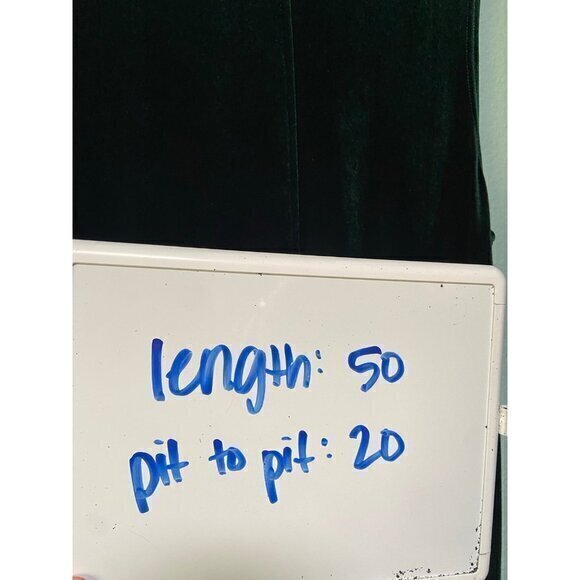 length: 50
pit to pit: 20